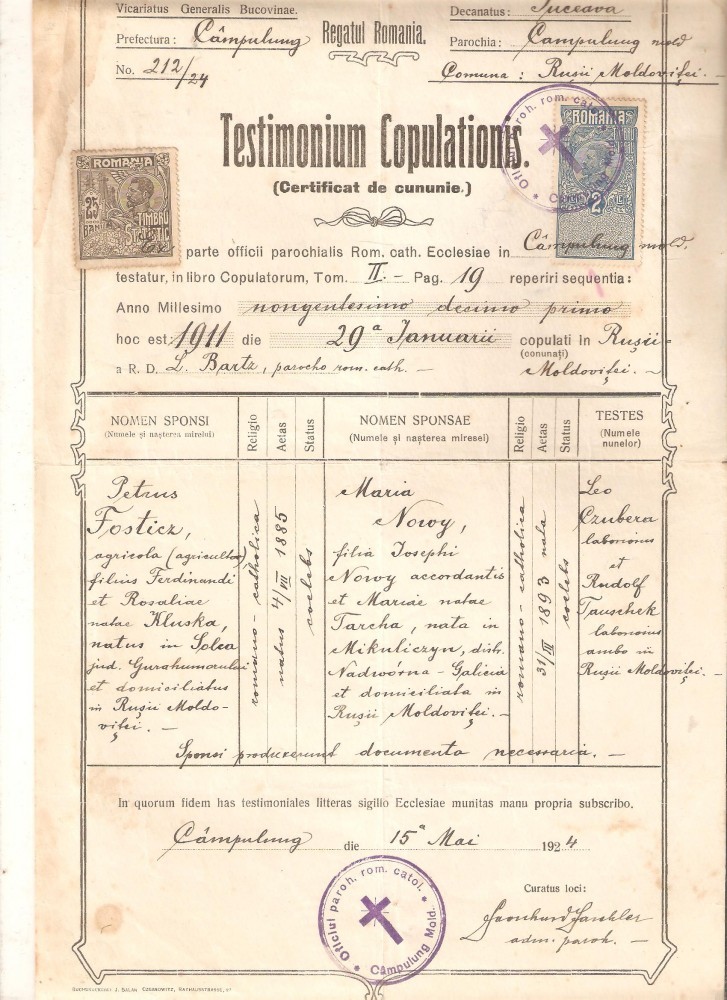 Vicariatus Generalis Bucovinae.
Decanatus: Suceava
Prefectura: Câmpulung
Regatul Romania.
Parochia: Campulung mold
No. 212/24
Comuna: Rușii Moldoviței. —
Testimonium Copulationis.
(Certificat de cununie.)
Oficiul paroh. rom. catol. * Câmpulung Mold. *
ROMANIA
2 LEI
ROMANIA
25 BANI
TIMBRU
STATISTIC
Ex parte officii parochialis Rom. cath. Ecclesiae in Câmpulung mold.
testatur, in libro Copulatorum, Tom. II. — Pag. 19 reperiri sequentia:
Anno Millesimo nongentesimo decimo primo
hoc est 1911 die 29ª Ianuarii copulati in Rușii-
(conunați)
a R. D. L. Bartz, parocho rom. cath. — Moldoviței. —
NOMEN SPONSI
(Numele și nașterea mirelui)
Religio
Aetas
Status
NOMEN SPONSAE
(Numele și nașterea miresei)
Religio
Aetas
Status
TESTES
(Numele
nunelor)
Petrus
Fosticz,
agricola (agricultor)
filius Ferdinandi
et Rosaliae
natae Kluska,
natus in Solca
jud. Gurahumorului
et domiciliatus
in Rușii Moldo-
viței. —
romano-catholica
natus 4/VII 1885
coelebs
Maria
Nowy,
filia Iosephi
Nowy accordantis
et Mariae natae
Tarcha, nata in
Mikuliczyn, distr.
Nadwórna-Galicia
et domiciliata in
Rușii Moldoviței. —
romano-catholica
31/III 1893 nata
coelebs
Leo
Czubera
laborioius
et
Rudolf
Tauschek
laborioius
ambo in
Rușii Moldoviței. —
Sponsi produxerunt documenta necessaria. —
In quorum fidem has testimoniales litteras sigillo Ecclesiae munitas manu propria subscribo.
Câmpulung die 15ª Mai 1924
Oficiul paroh. rom. catol. * Câmpulung Mold. *
Curatus loci:
adm. paroh. —